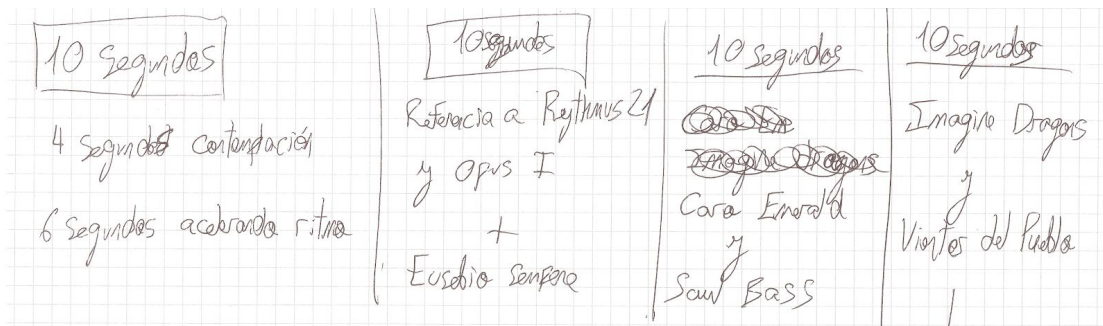 10 Segundos
4 segundos contemplación
6 segundos acelerando ritmo
10 segundos
Referencia a Rythmus 21
y Opus I
+
Eusebio Sempere
10 segundos
Imagine Dragons
Caro Emerald
y
Saul Bass
10 segundos
Imagine Dragons
y
Vientos del Pueblo